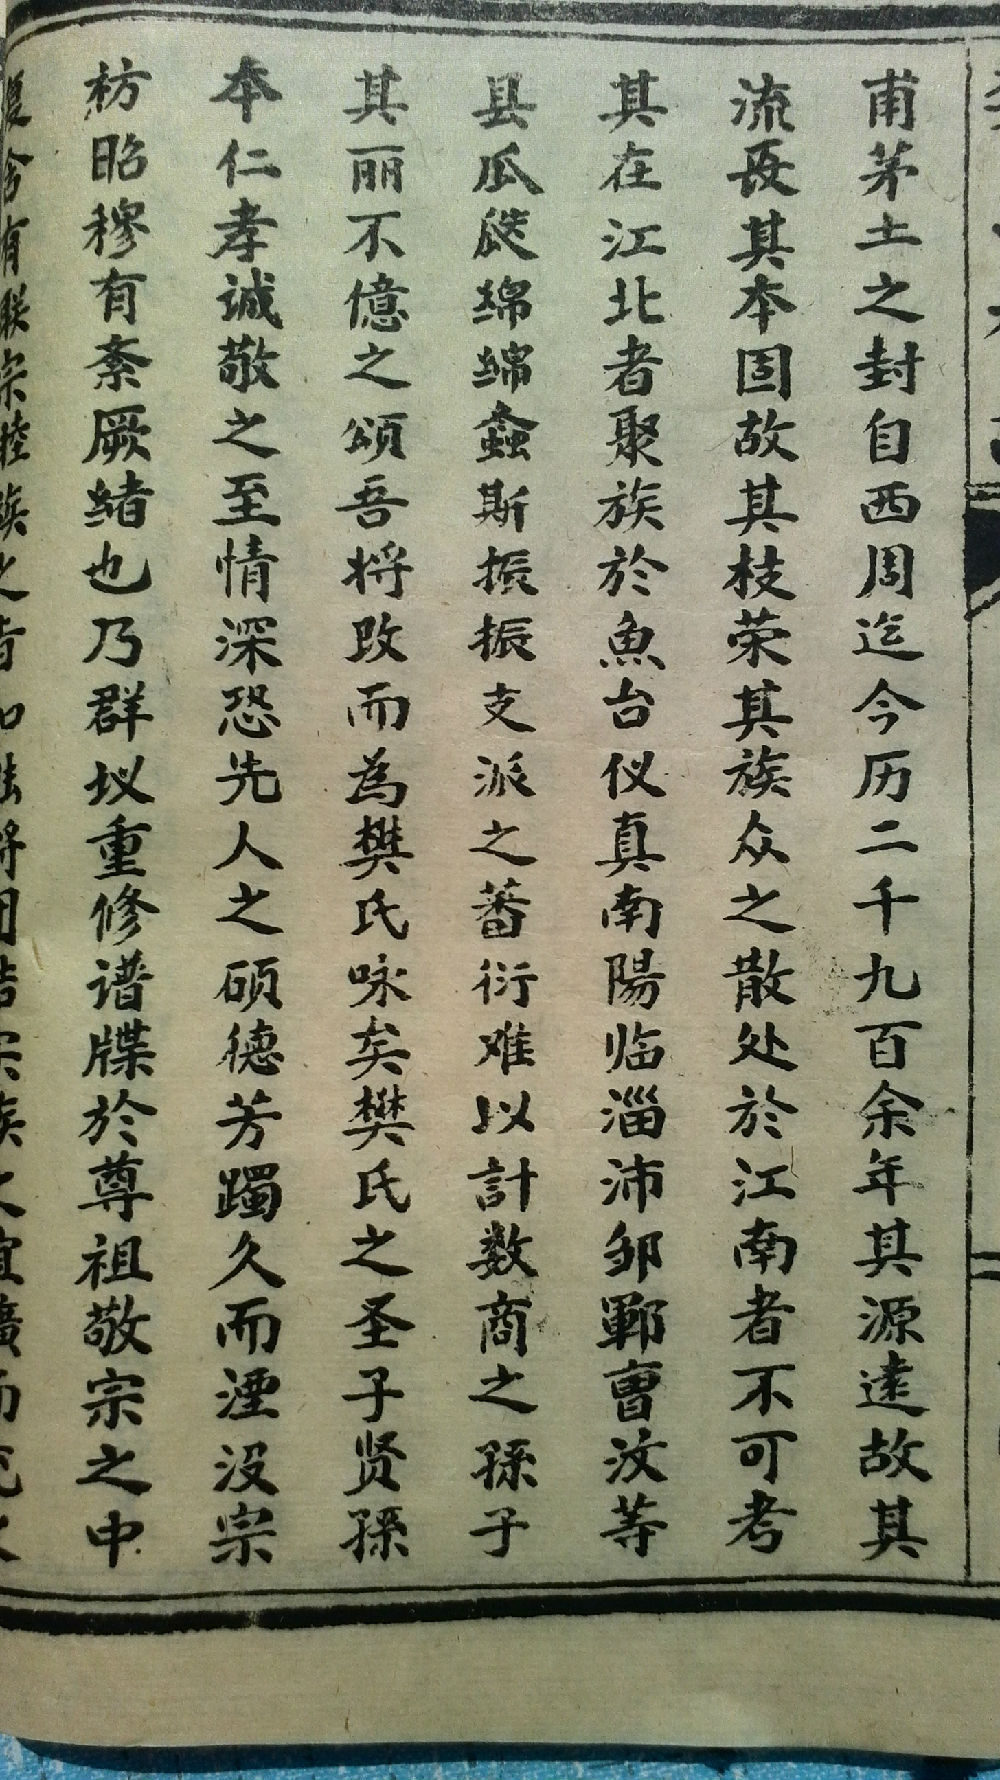 甫茅土之封自西周迄今历二千九百余年其源遠故其
流長其本固故其枝荣其族众之散处於江南者不可考
其在江北者聚族於魚台仪真南陽临淄沛邹鄆曹汶等
县瓜瓞绵绵螽斯振振支派之蕃衍难以計数商之孫子
其丽不億之頌吾将改而為樊氏咏矣樊氏之圣子贤孫
本仁孝诚敬之至情深恐先人之硕德芳躅久而湮没宗
枋昭穆有紊厥绪也乃群议重修谱牒於尊祖敬宗之中